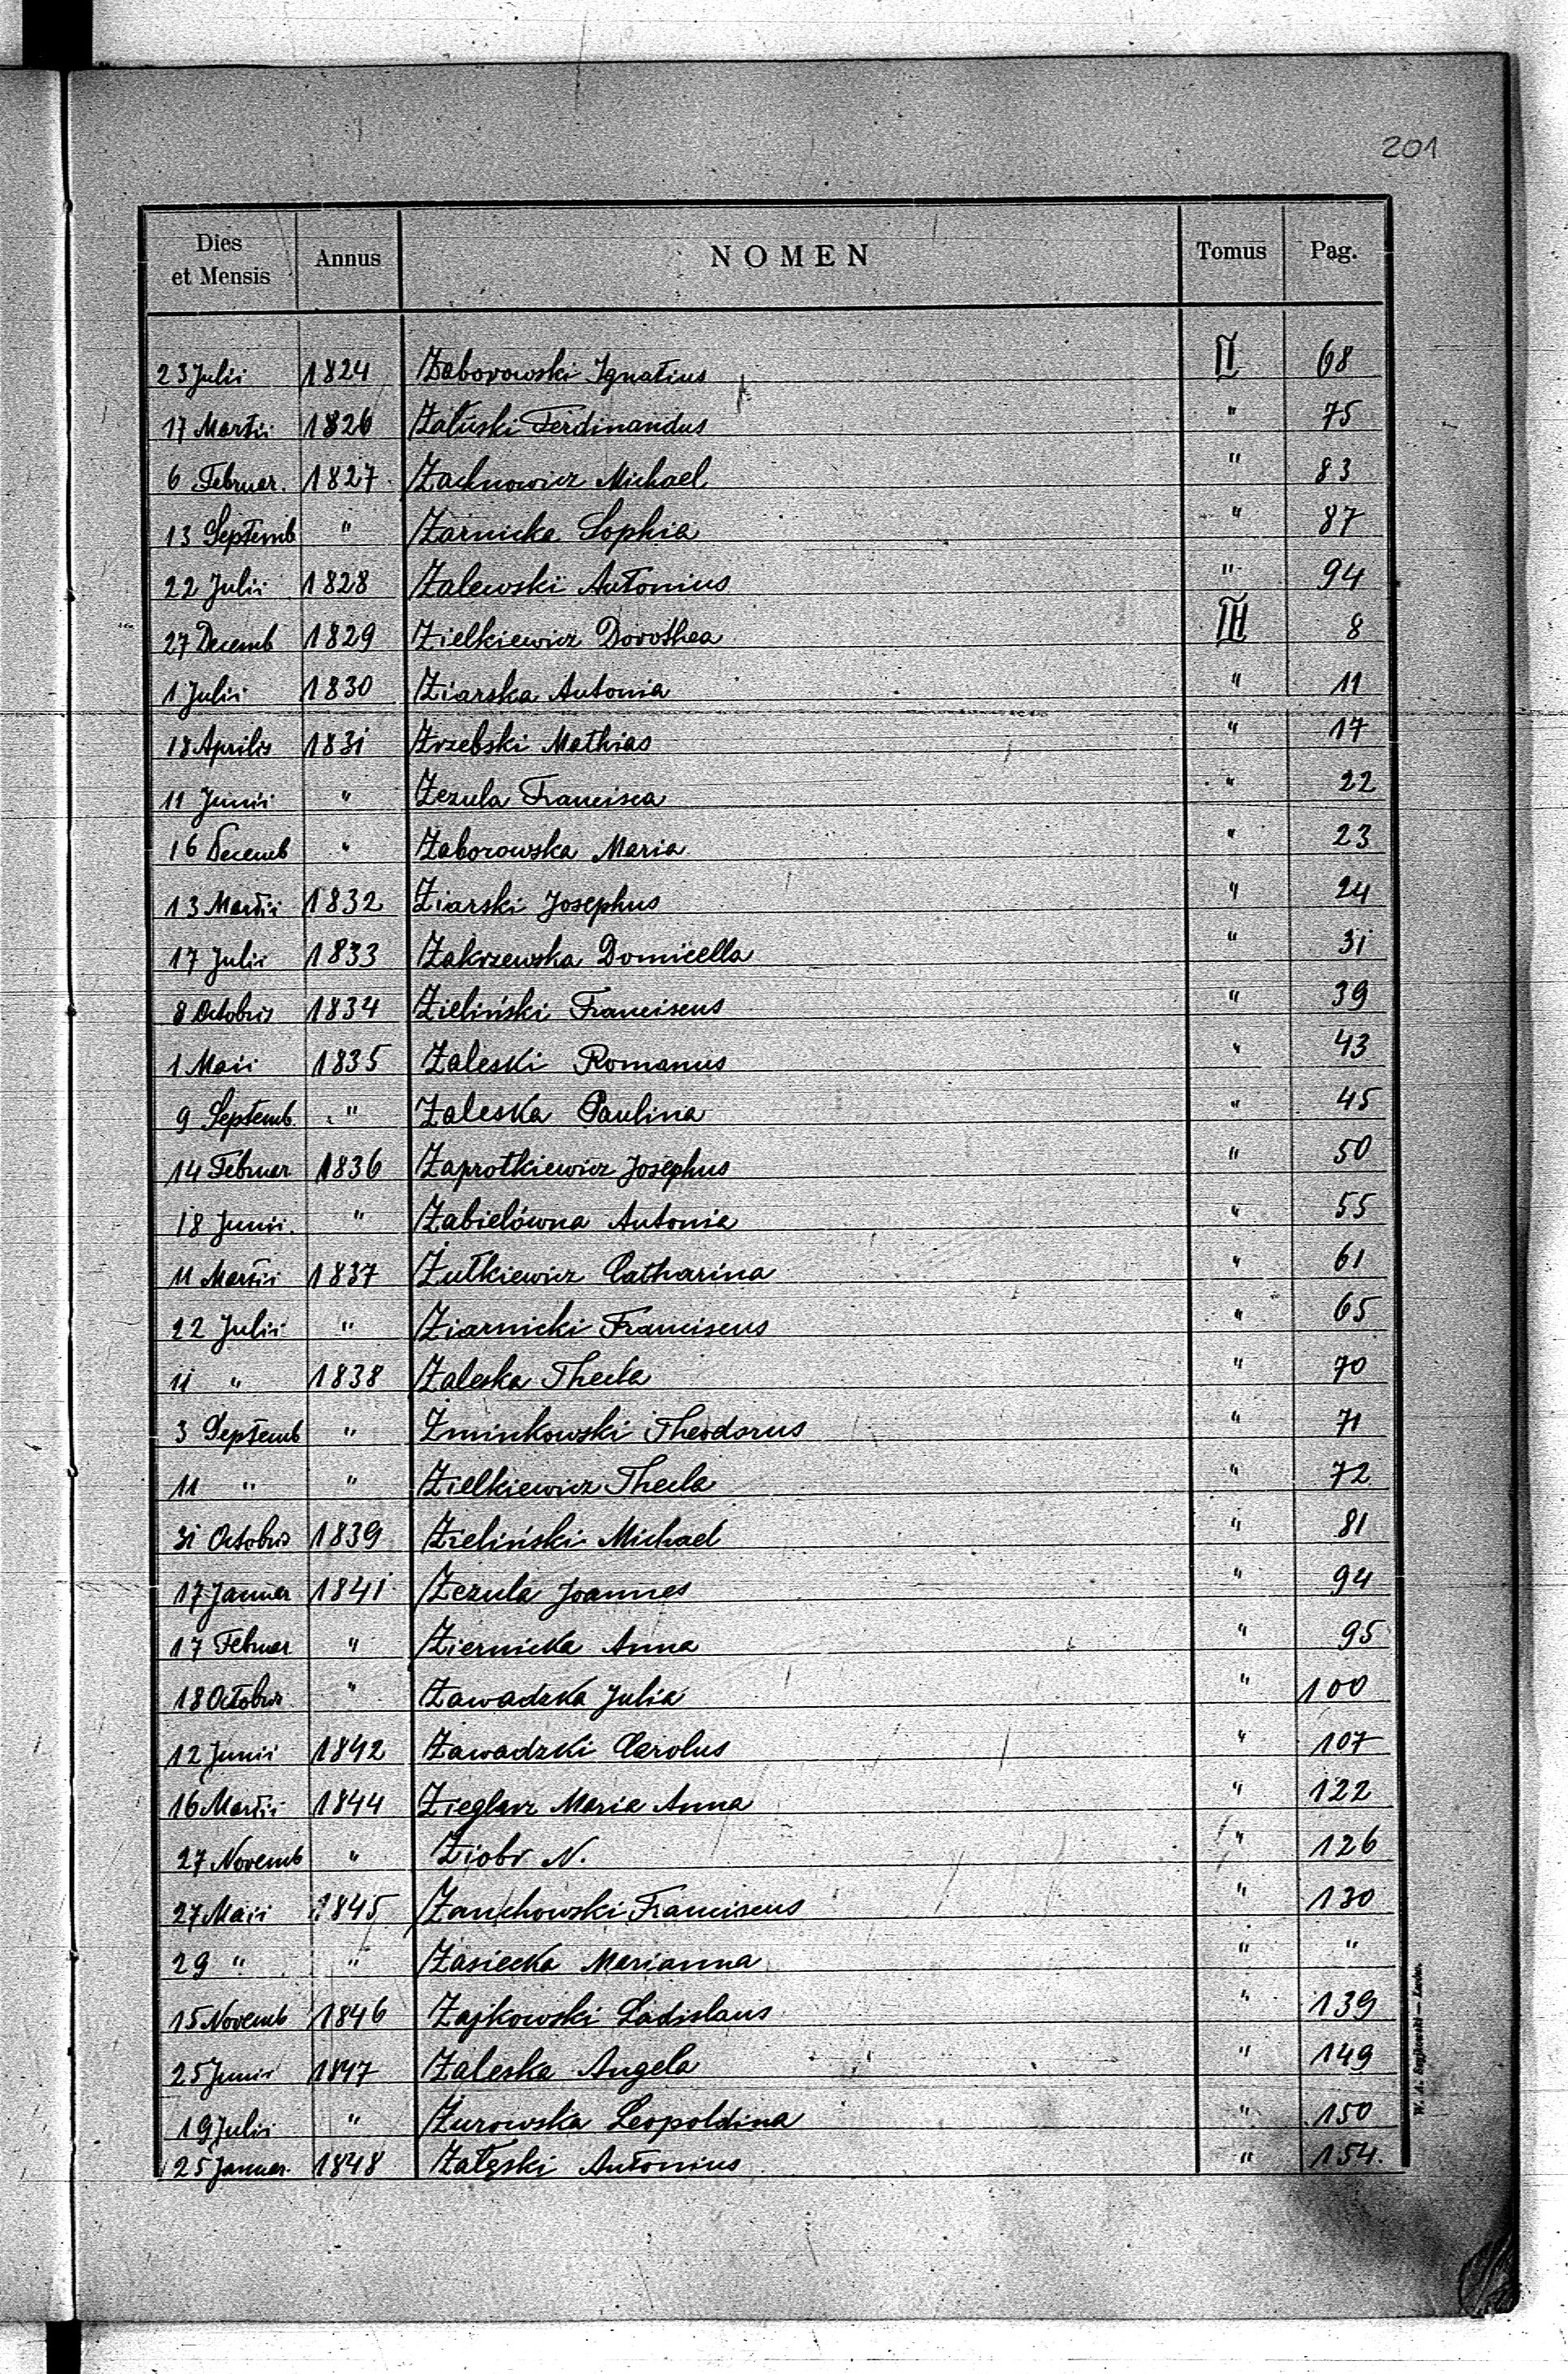 201
Dies et Mensis Annus NOMEN Tomus Pag.
23 Julii 1824 Zaborowski Ignatius II 68
17 Martii 1826 Załuski Ferdinandus " 75
6 Februar. 1827 Zachnowicz Michael " 83
13 Septemb " Zarnicka Sophia " 87
22 Julii 1828 Zalewski Antonius " 94
27 Decemb 1829 Zielkiewicz Dorothea III 8
1 Julii 1830 Ziarska Antonia " 11
18 Aprilis 1831 Zrzebski Mathias " 17
11 Junii " Zezula Francisca " 22
16 Decemb " Zaborowska Maria " 23
13 Martii 1832 Ziarski Josephus " 24
17 Julii 1833 Zakrzewska Domicella " 31
8 Octobris 1834 Zieliński Franciscus " 39
1 Maii 1835 Zaleski Romanus " 43
9 Septemb. " Zaleska Paulina " 45
14 Februar 1836 Zaprotkiewicz Josephus " 50
18 Junii " Zabielówna Antonia " 55
11 Martii 1837 Żułkiewicz Catharina " 61
22 Julii " Ziarnicki Franciscus " 65
11 " 1838 Zaleska Thecla " 70
3 Septemb " Żminkowski Theodorus " 71
11 " " Zielkiewicz Thecla " 72
31 Octobris 1839 Zieliński Michael " 81
17 Januar 1841 Zezula Joannes " 94
17 Februar " Ziernicka Anna " 95
18 Octobris " Zawadzka Julia " 100
12 Junii 1842 Zawadzki Carolus " 107
16 Martii 1844 Zieglarz Maria Anna " 122
27 Novemb " Ziobr N. " 126
27 Maii 1845 Zanchowski Franciscus " 130
29 " " Zasiecka Marianna " "
15 Novemb 1846 Zajkowski Ladislaus " 139
25 Junii 1847 Zaleska Angela " 149
19 Julii " Żurowska Leopoldina " 150
25 Januar. 1848 Załęski Antonius " 154.